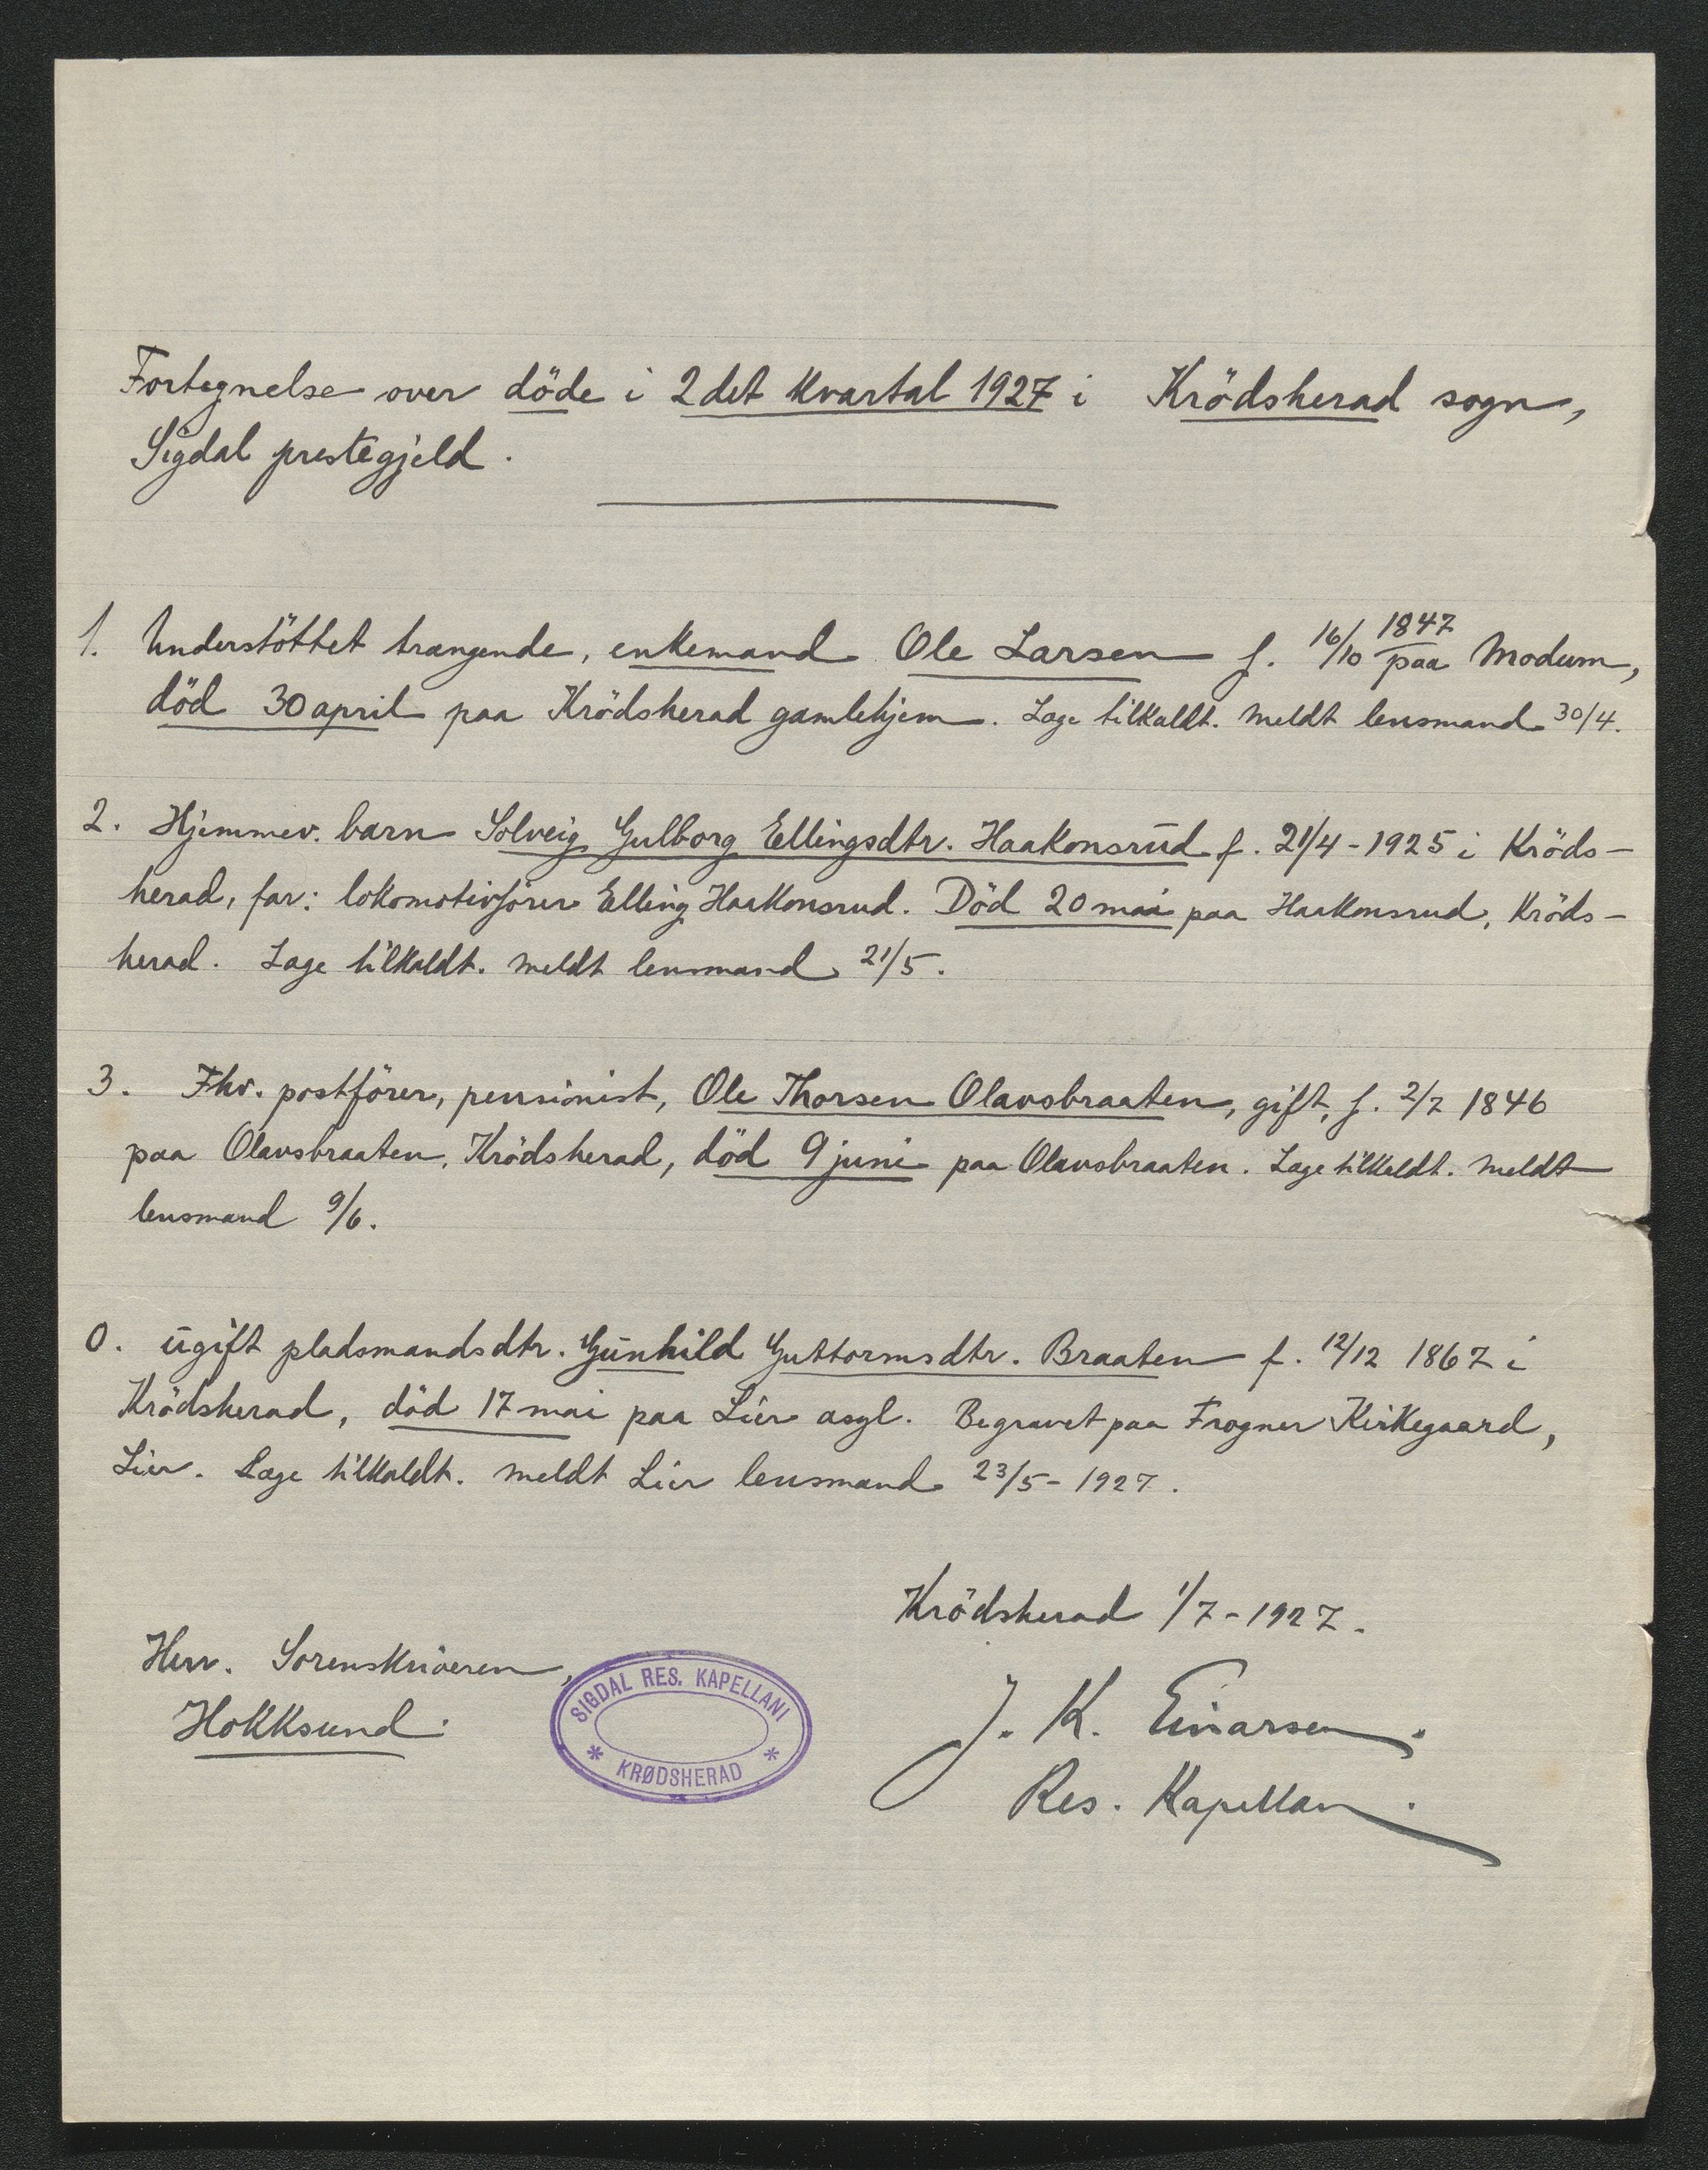 Fortegnelse over döde i 2det Kvartal 1927 i Krödsherad sogn,
Sigdal prestegjeld.
1. Understöttet trængende, enkemand Ole Larsen f. 16/10 1847 paa Modum,
död 30 april paa Krödsherad gamlehjem. Læge tilkaldt. Meldt lensmand 30/4.
2. Hjemmev. barn Solveig Gulborg Ellingsdtr. Haakonsrud f. 21/4 - 1925 i Kröds-
herad, far: lokomotivförer Elling Haakonsrud. Död 20 mai paa Haakonsrud, Kröds-
herad. Læge tilkaldt. Meldt lensmand 21/5.
3. Fhv. postförer, pensionist, Ole Thorsen Olavsbraaten, gift, f. 2/7 1846
paa Olavsbraaten, Krödsherad, död 9 juni paa Olavsbraaten. Læge tilkaldt. Meldt
lensmand 9/6.
0. Ugift pladsmandsdtr. Gunhild Guttormsdtr. Braaten f. 12/12 1867 i
Krödsherad, död 17 mai paa Lier asyl. Begravet paa Frogner Kirkegaard,
Lier. Læge tilkaldt. Meldt Lier lensmand 23/5 - 1927.
Krödsherad 1/7 - 1927.
Herr. Sorenskriveren,
Hokksund.
SIGDAL RES. KAPELLANI
* KRØDSHERAD *
J. K. Einarsen.
Res. Kapellan.